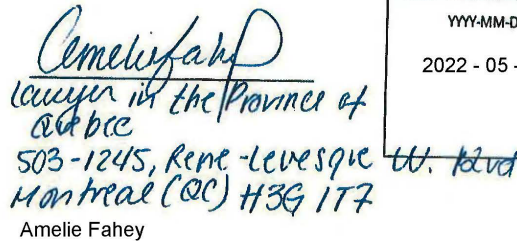 YYYY-MM-D
2022 - 05 -
Lawyer in the Province of
Quebec
503-1245, Rene-Levesque W. Blvd
Montreal (QC) H3G 1T7
Amelie Fahey